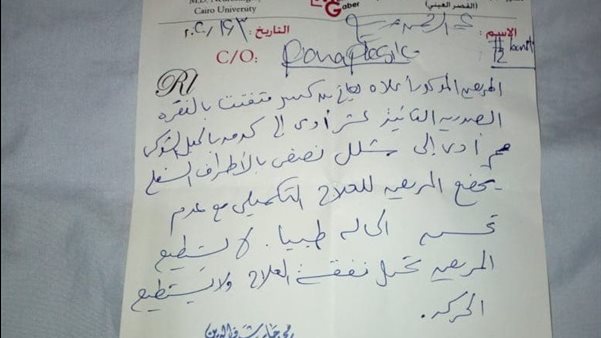 M.D. Neurosurgery
Cairo University
Gaber
(القصر العيني)
الإسم:
التاريخ: ٢٠٢٠/٦/٢
C/O: Paraplegia
R/
المريض المذكور أعلاه يعاني من كسر متفتت بالفقره
الصدريه الثانية عشر أدى إلى كدمه بالحبل الشوكى
مم أدى إلى شلل نصفى بالأطراف السفلى
يخضع المريض للعلاج التكميلى مع عدم
تحسن الحاله طبيا. لا يستطيع
المريض تحمل نفقة العلاج ولا يستطيع
الحركه.